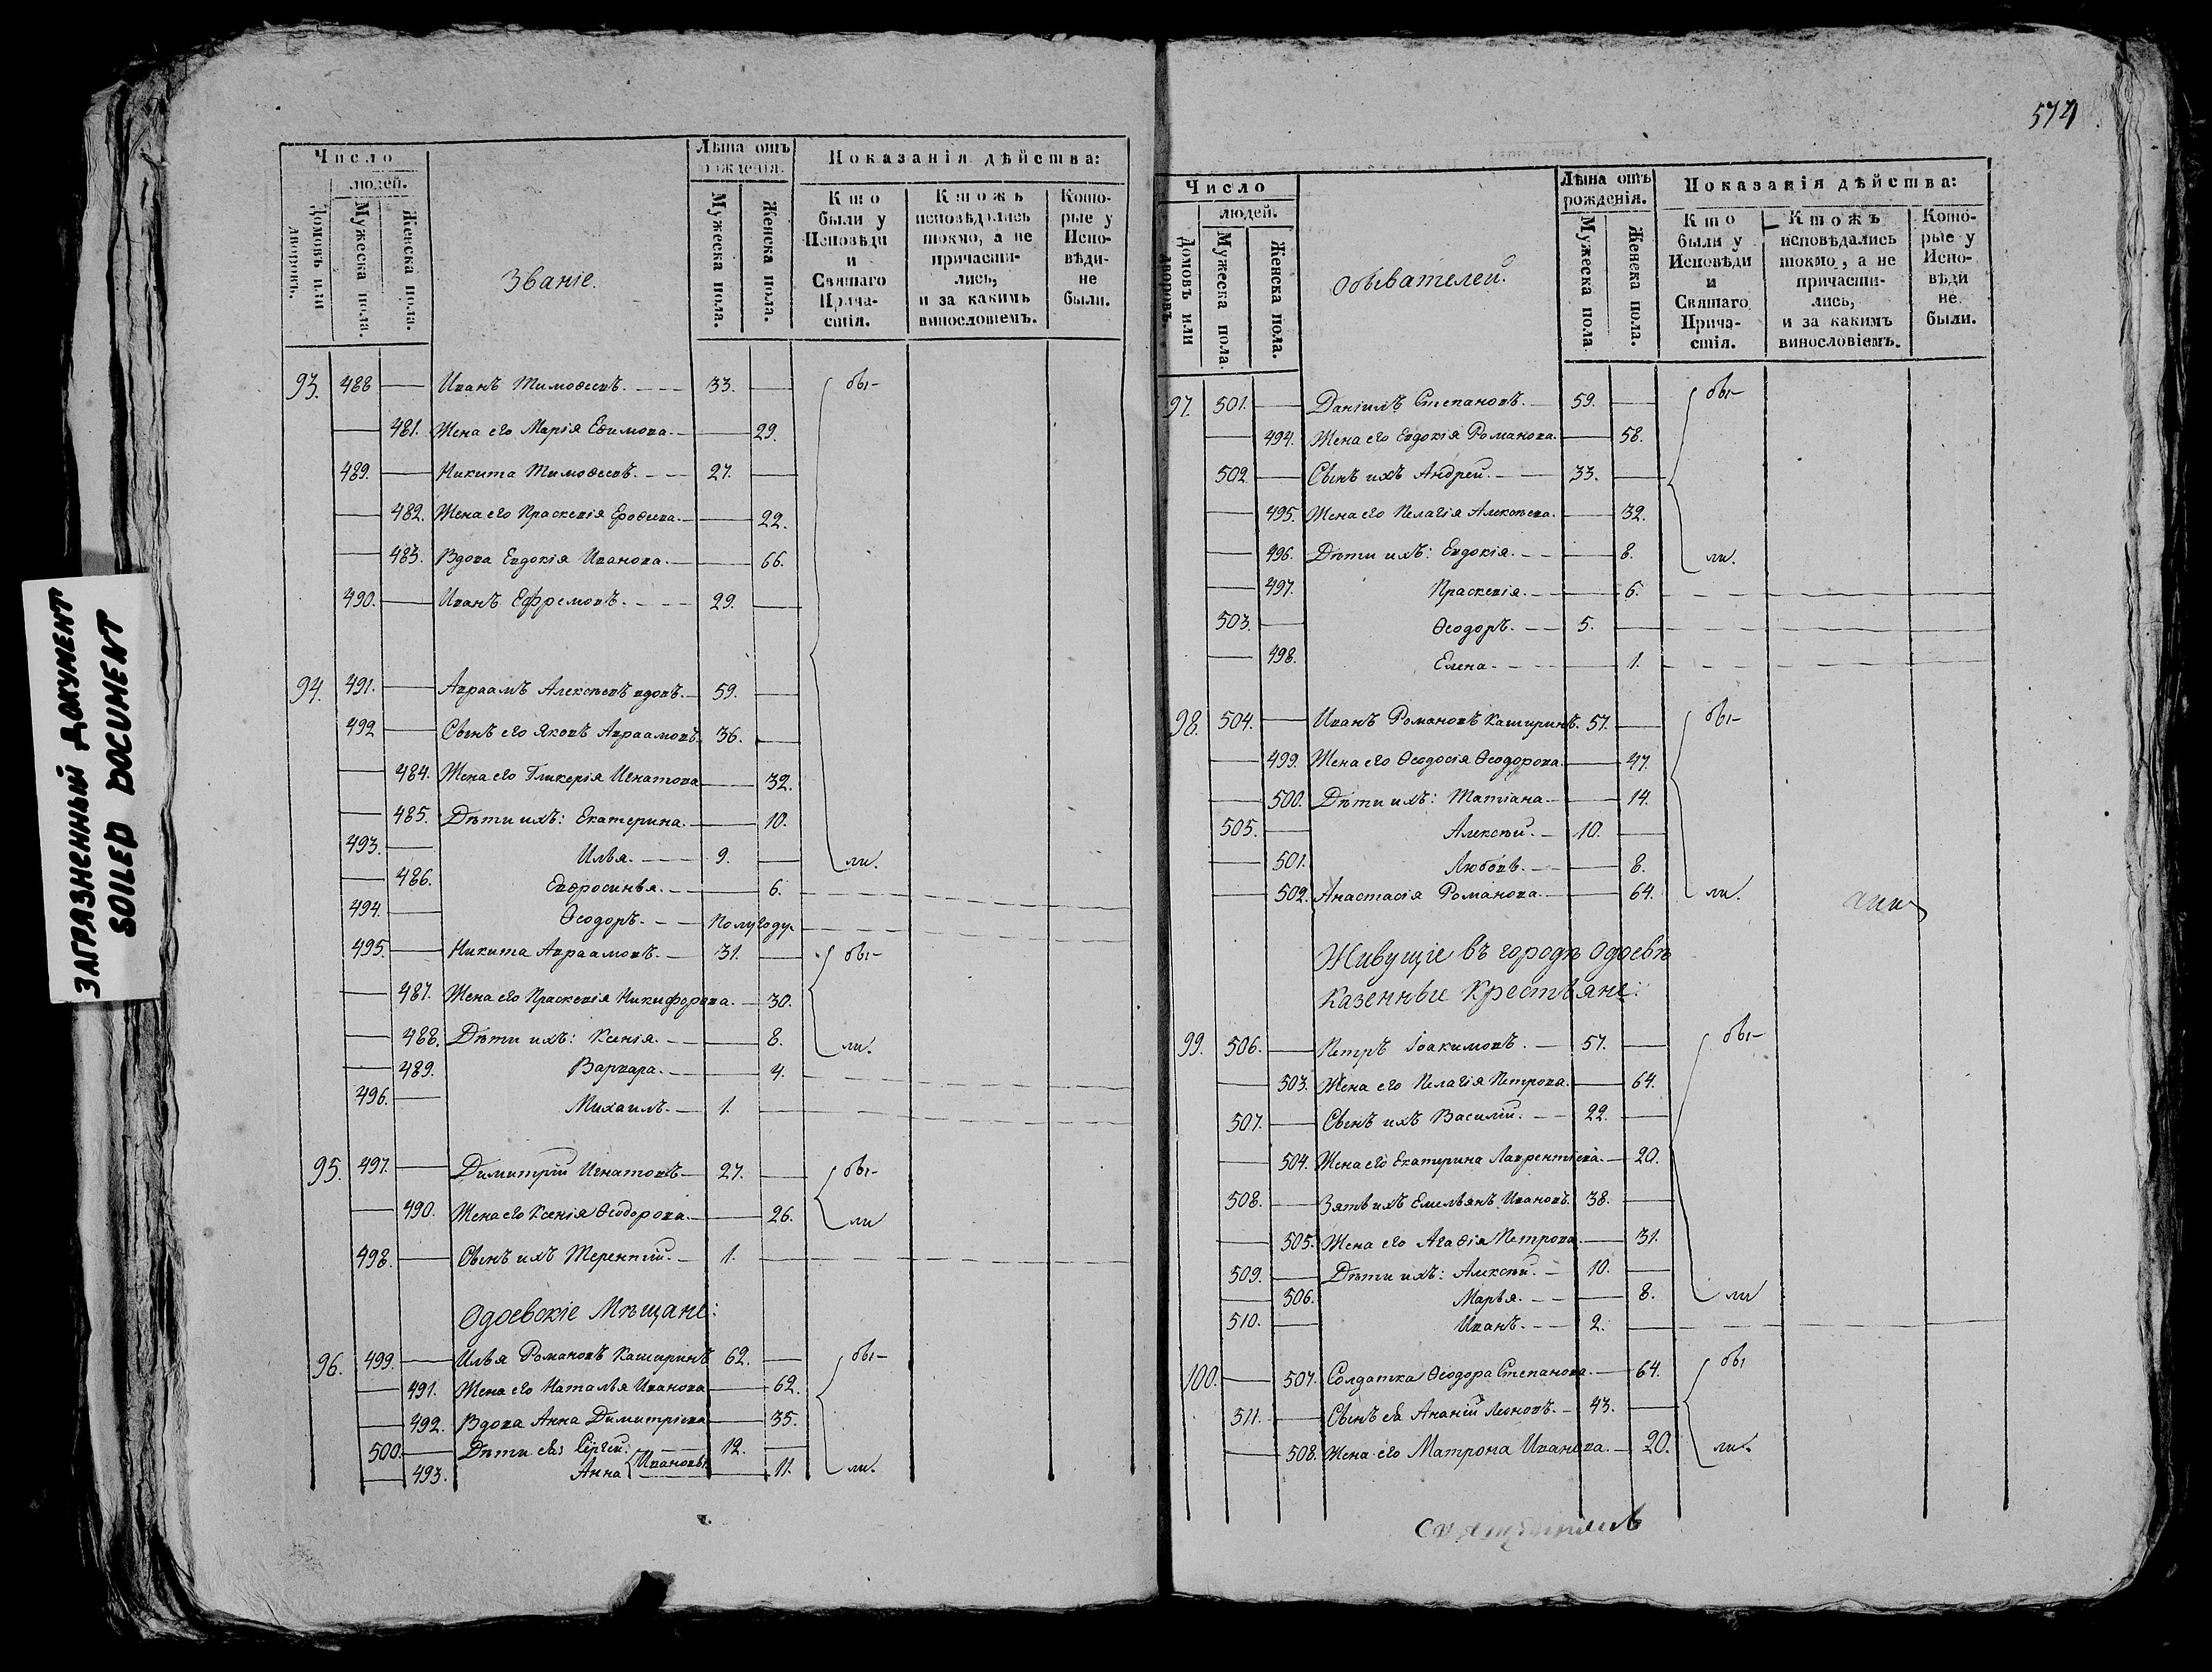 ЗАГРЯЗНЕННЫЙ ДОКУМЕНТ
SOILED DOCUMENT
Число
людей.
Домовъ или дворовъ.
Мужеска пола.
Женска пола.
Званіе.
Лѣта отъ рожденія.
Мужеска пола.
Женска пола.
Показанія дѣйства:
Кто были у Исповѣди и Святаго Прича-стія.
Ктожъ исповѣдались токмо, а не причасти-лись, и за какимъ винословіемъ.
Кото-рые у Испо-вѣди-не были.
93. 488 Иванъ Тимоѳеевъ. 33. бы-
481. Жена его Марія Ефимова. 29.
489. Никита Тимоѳеевъ. 27.
482. Жена его Прасковія Ероѳеева. 22.
483. Вдова Евдокія Иванова. 66.
490. Иванъ Ефремовъ. 29.
94. 491. Авраамъ Алексѣевъ вдовъ. 59.
492 Сынъ его Яковъ Авраамовъ. 36.
484. Жена его Гликерія Игнатова 32.
485. Дѣти ихъ: Екатерина. 10.
493. Илья. 9. ли.
486. Евфросинья. 6.
494. Ѳеодоръ. Полугоду.
495. Никита Авраамовъ. 31. бы-
487. Жена его Прасковія Никифорова. 30.
488. Дѣти ихъ: Ксенія. 8. ли.
489. Варвара. 4.
496. Михаилъ. 1.
95. 497. Димитрій Игнатовъ 27. бы-
490. Жена его Ксенія Ѳеодорова. 26. ли
498. Сынъ ихъ Терентій. 1.
Одоевскіе Мѣщане:
96. 499. Илья Романовъ Каширинъ 62. бы-
491. Жена его Наталья Иванова 62.
492. Вдова Анна Димитріева 35.
500. Дѣти ея: Сергей. 12.
Ивановы.
493. Анна 11. ли.
574
Число
людей.
Домовъ или дворовъ.
Мужеска пола
Женска пола.
Обывателей.
Лѣта отъ рожденія.
Мужеска пола
Женска пола.
Показанія дѣйства:
Кто были у Исповѣди и Святаго Прича-стія.
Ктожъ исповѣдались токмо, а не причасти-лись, и за какимъ винословіемъ.
Кото-рые у Испо-вѣди не были.
97. 501. Даніилъ Степановъ. 59. бы-
494. Жена его Евдокія Романова. 58.
502 Сынъ ихъ Андрей. 33.
495. Жена его Пелагія Алексѣева. 32.
496. Дѣти ихъ: Евдокія. 8. ли.
497. Прасковія. 6.
503. Ѳеодоръ. 5.
498. Елена. 1.
98. 504. Иванъ Романовъ Каширинъ. 57. бы-
499. Жена его Ѳеодосія Ѳеодорова. 47.
500. Дѣти ихъ: Татіана. 14.
505. Алексѣй. 10.
501. Любовь. 8.
502. Анастасія Романова. 64. ли.
Живущіе въ городѣ Одоевѣ
Казенные Крестьяне:
99. 506. Петръ Іоакимовъ. 57. бы-
503. Жена его Пелагія Петрова. 64.
507. Сынъ ихъ Василій. 22.
504. Жена его Екатерина Лаврентіева. 20.
508. Зять ихъ Емельянъ Ивановъ. 38.
505. Жена его Агаѳія Петрова 31.
509. Дѣти ихъ: Алексѣй. 10.
506. Марья. 8. ли
510. Иванъ. 2.
100. 507. Солдатка Ѳеодора Степанова. 64. бы
511. Сынъ ея Ананій Леоновъ. 43.
508. Жена его Матрона Иванова. 20. ли.